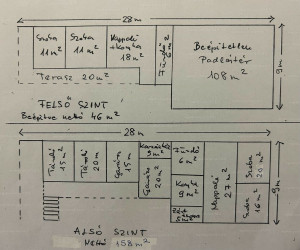 28m
Szoba
11m²
Szoba
11m²
Nappali
+konyha
18m²
Beépítetlen
Padlástér
108m²
9m
Terasz 20m²
FELSŐ SZINT
Beépítve nettó 46m²
28m
Tároló
15m²
Tároló
20m²
Garázs
15m²
Garázs
20m²
Kazánház
9m²
Fürdő
6m²
Konyha
9m²
Nappali
27m²
Szoba
20m²
Szoba
16m²
9m
ALSÓ SZINT
Nettó 158m²